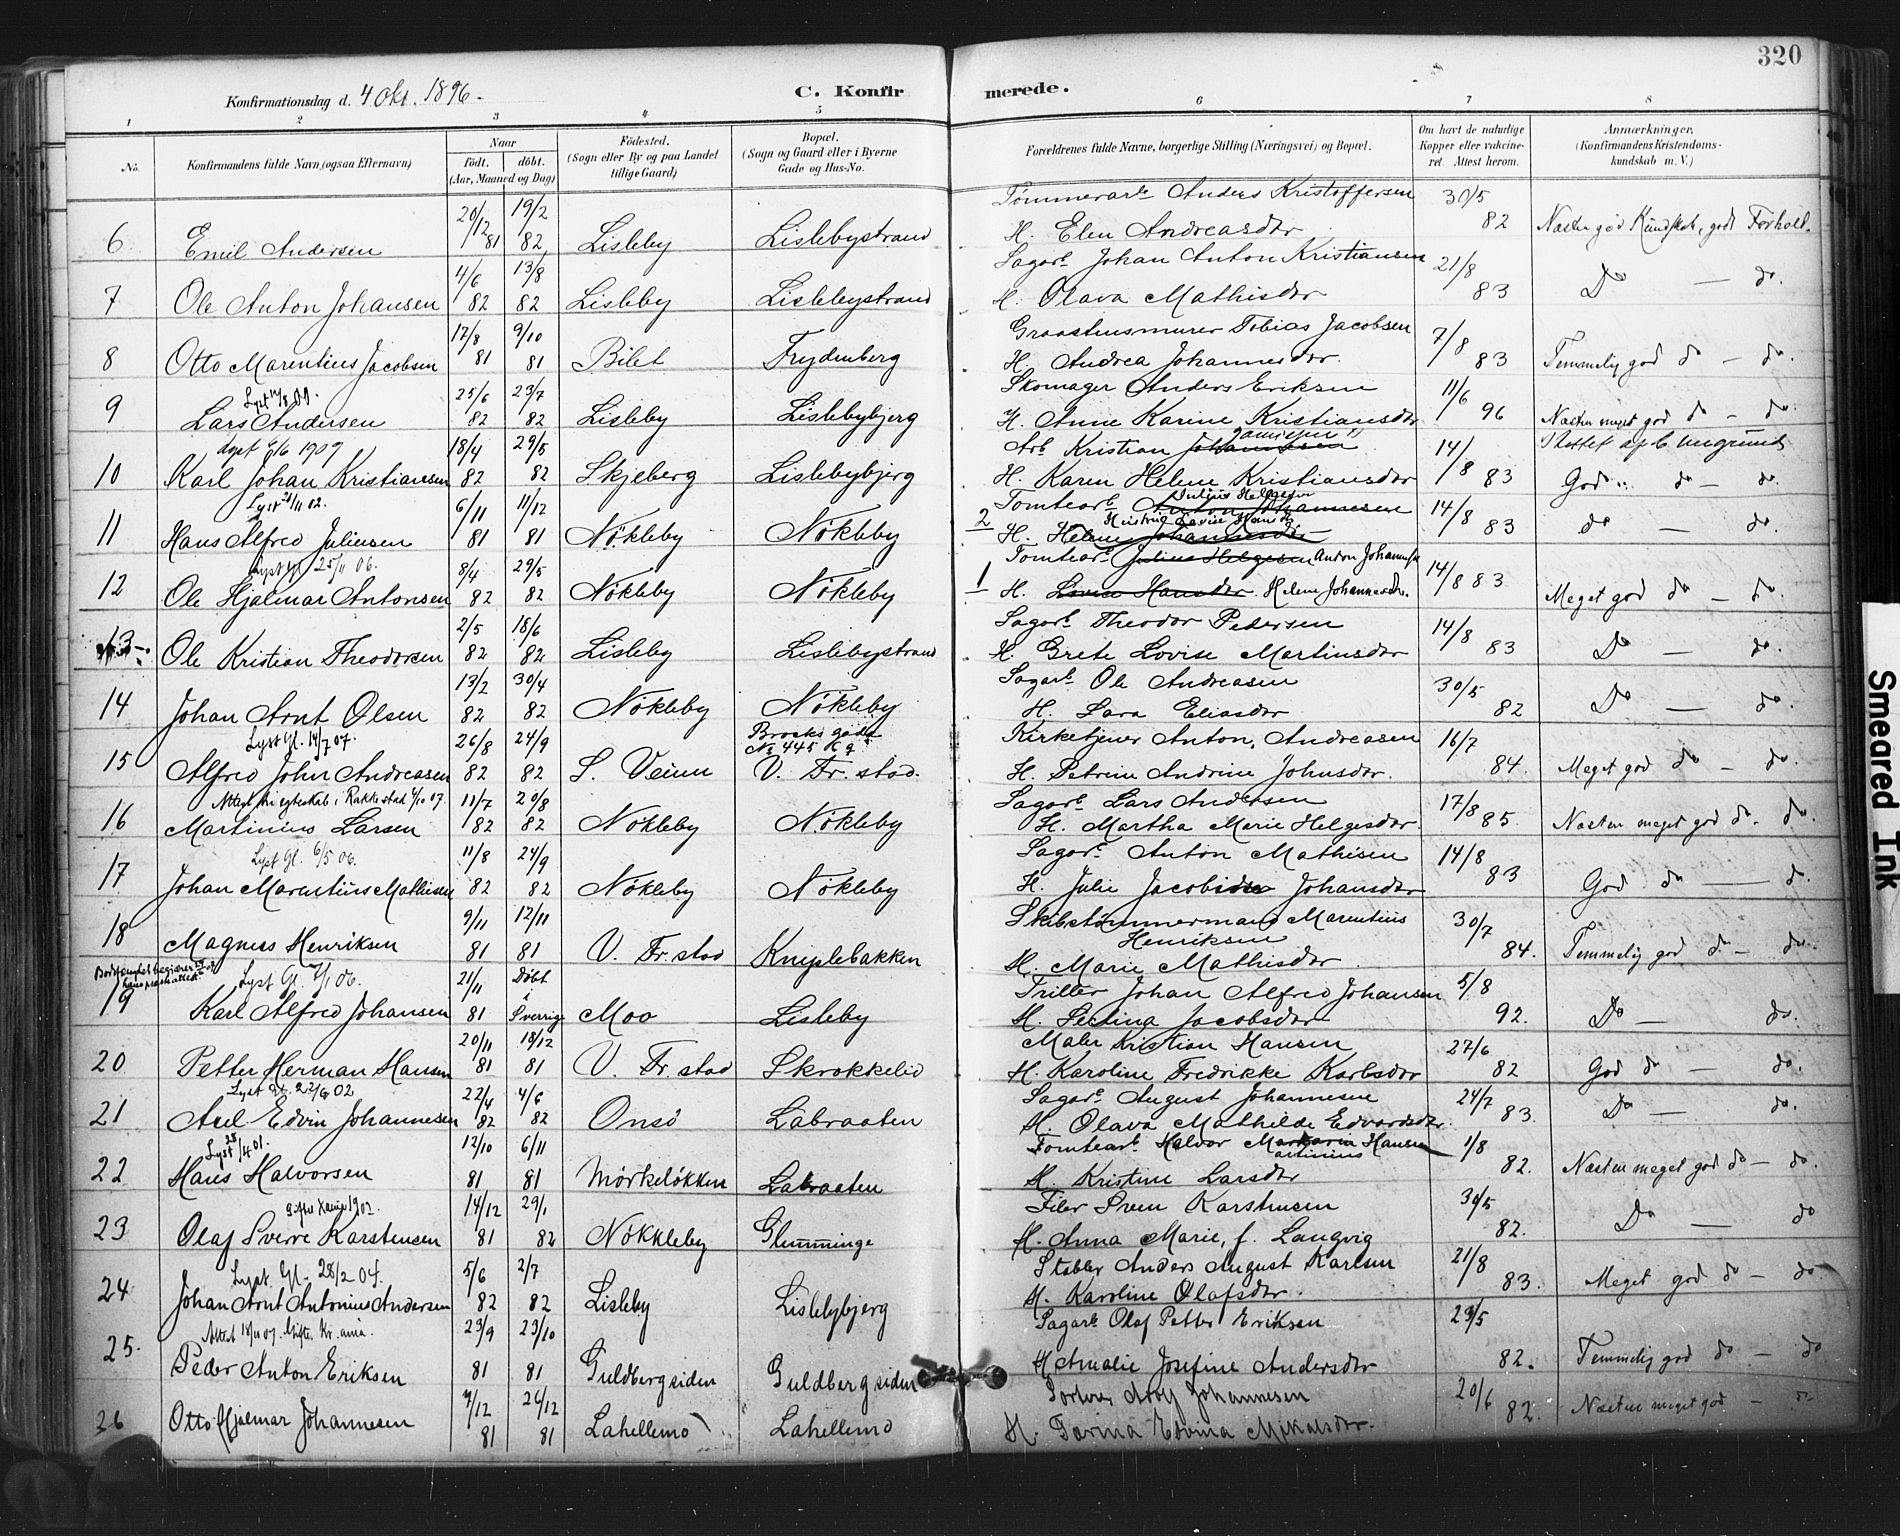 320
Konfirmationsdag d. 4 Okt. 1896.
C. Konfirmerede.
1 2 3 4 5 6 7 8
No. Konfirmandens fulde Navn (ogsaa Efternavn) Naar født. døbt. (Aar, Maaned og Dag) Fødested. (Sogn eller By og paa Landet tillige Gaard) Bopæl. (Sogn og Gaard eller i Byerne Gade og Hus-No. Forældrenes fulde Navne, borgerlige Stilling (Næringsvei) og Bopæl. Om havt de naturlige Kopper eller vakcineret. Attest herom. Anmærkninger, (Konfirmandens Kristendomskundskab m. V.)
Tømmerarb. Anders Kristoffersen
6 Emil Andersen 20/12 81 19/2 82 Lisleby Lislebystrand H. Elen Andreasdr 30/5 82 Næsten god Kundskab, godt Forhold.
Sagarb. Johan Anton Kristiansen
7 Ole Anton Johansen 4/6 82 13/8 82 Lisleby Lislebystrand H. Olava Mathisdr 21/8 83 Do — do.
Graastensmurer Tobias Jacobsen
8 Otto Marentius Jacobsen 17/8 81 9/10 81 Bilet Frydenberg H. Andrea Johannesdr. 7/8 83 Temmelig god do — do.
Skomager Anders Eriksen
9 Lars Andersen 25/6 82 23/7 82 Lisleby Lislebybjerg H. Anne Karine Kristiansdr 11/6 96 Næsten meget god do — do.
Lyst 6/6 1909
Arb. Kristian Johannesen
10 Karl Johan Kristiansen 18/4 82 29/5 82 Skjeberg Lislebybjerg H. Karen Helene Kristiansdr 14/8 83 God do — do.
Lyst 21/11 02.
Tomtearb. Anton Johannesen Julius Helgesen
11 Hans Alfred Juliusen 6/11 81 11/12 81 Nökleby Nökleby 2 H. Helene Johannesdr Lovise Hansdr 14/8 83 do — do
Lyst 25/11 06.
Tomtearb. Julius Helgesen Anton Johannesen
12 Ole Hjalmar Antonsen 8/4 82 29/5 82 Nökleby Nökleby 1 H. Lovise Hansdr. Helene Johannesdr. 14/8 83 Meget god do — do.
Sagarb. Theodor Pedersen
13 Ole Kristian Theodorsen 2/5 82 18/6 82 Lisleby Lislebystrand H. Grete Lovise Martinusdr 14/8 83 Do — do.
Sagarb. Ole Andreasen
14 Johan Arnt Olsen 13/2 82 30/4 82 Nökleby Nökleby H. Lara Eliasdr 30/5 82 Do — do.
Lyst Gl. 14/7 07.
Brocks gade No 445
Kirketjener Anton, Andreasen
15 Alfred John Andreasen 26/8 82 24/9 82 S. Veium V. Fr.stad. H. Petrine Andrine Johnsdr. 16/7 84. Meget god do — do.
Attest til egteskab i Rakkestad 4/10 07.
Sagarb. Lars Andersen
16 Martinius Larsen 11/7 82 20/8 82 Nökleby Nökleby H. Martha Marie Helgesdr. 17/8 85. Næsten meget god do. do.
Lyst Gl. 6/5 06.
Sagarb. Anton Mathisen
17 Johan Marentius Mathisen 11/8 82 24/9 82 Nökleby Nökleby H. Julie Jacobsdr Johansdr 14/8 83 God do — do.
Skibstømmermand Marentius Henriksen
18 Magnus Henriksen 9/11 81 12/11 81 V. Fr.stad Kniplebakken H. Marie Mathisdr 30/7 84. Temmelig god do — do.
Lyst Gl. 7/1 06.
Triller Johan Alfred Johansen
19 Karl Alfred Johansen 21/11 81 Döbt i Sverrige Moo Lisleby H. Sedina Jacobsdr 5/8 92. Do — do.
Maler Kristian Hansen
20 Petter Herman Hansen 20/11 81 18/12 81 V. Fr.stad Skrokkelid H. Karoline Fredrikke Karlsdr 27/6 82 God do — do.
Lyst Gl. 22/6 02
Sagarb. August Johannesen
21 Axel Edvin Johannesen 22/4 82 4/6 82 Onsö Labraaten H. Olava Mathilde Edvardsdr. 24/7 83. Do — do.
Lyst 28/4 01.
Tomtearb. Halvor Martinius Hansen
22 Hans Halvorsen 12/10 81 6/11 81 Mörkeløkken Labraaten H. Kristine Larsdr 1/8 82. Næsten meget god do — do.
Filer Sven Karstensen
23 Olaf Sverre Karstensen 14/12 81 29/1 82 Nökkleby Glemminge H. Anna Marie, f. Langvig 30/5 82. Do — do
Lyst Gl. 28/2 04.
Stabler Anders August Karlsen
24 Johan Arnt Antonius Andersen 5/6 82 2/7 82 Lisleby Lislebybjerg H. Karoline Olafsdr. 21/8 83. Meget god do — do
Attest 18/11 07. Gifte. Kr.ania.
Sagarb. Olaf Petter Eriksen
25. Peder Anton Eriksen 23/9 81 23/10 81 Guldbergsiden Guldbergsiden H. Amalie Josefine Andersdr 29/5 82. Temmelig god do — do
Adolf Johannesen
26 Otto Hjalmar Johannesen 7/12 81 26/12 81 Lahellemo Lahellemo H. Edvina Mikalsdr. 20/6 82. Næsten meget god — do
Smeared Ink